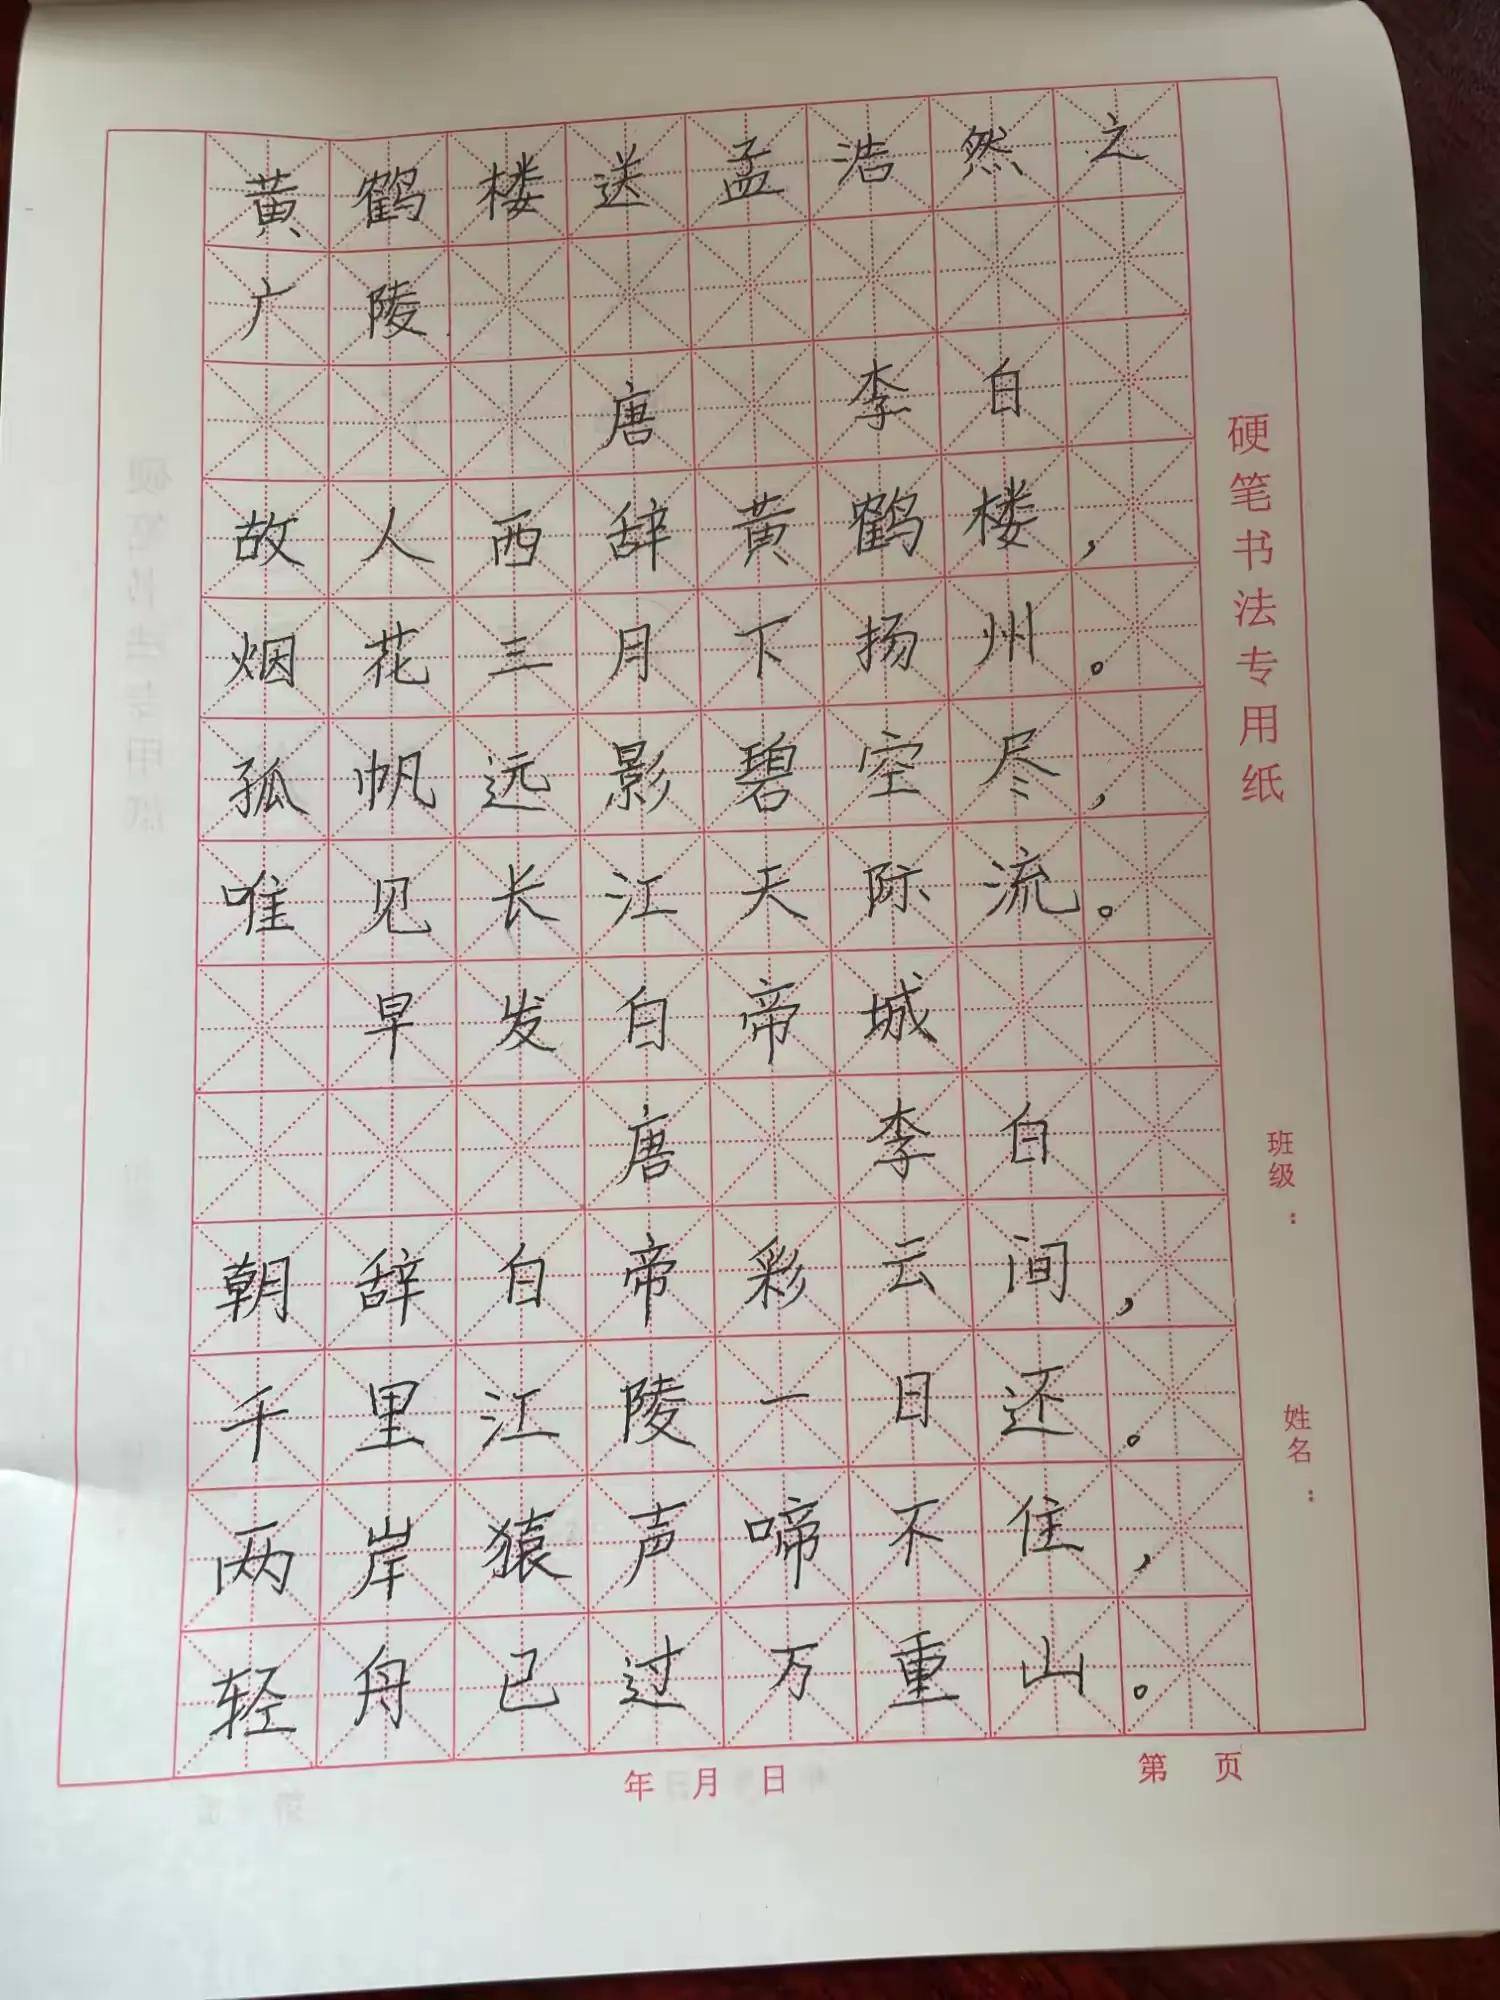 黄鹤楼送孟浩然之
广陵
唐 李白
故人西辞黄鹤楼，
烟花三月下扬州。
孤帆远影碧空尽，
唯见长江天际流。
早发白帝城
唐 李白
朝辞白帝彩云间，
千里江陵一日还。
两岸猿声啼不住，
轻舟已过万重山。
硬笔书法专用纸
班级：
姓名：
年 月 日
第 页